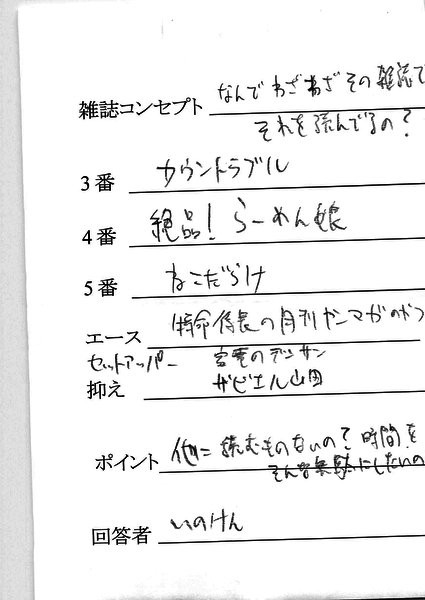 雑誌コンセプト なんでわざわざその雑誌で
それを読んでるの?
3番 カウントラブル
4番 絶品!らーめん娘
5番 ねこだらけ
エース 特命係長の月刊ヤンマガのやつ
セットアッパー 家電のデンサン
抑え ザビエル山田
ポイント 他に読むものないの?時間を
そんな無駄にしたいの
回答者 いのけん